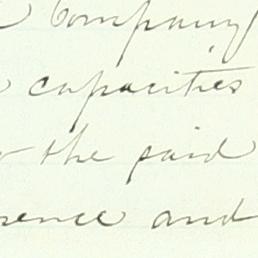 Company
capacities
the said
rence and